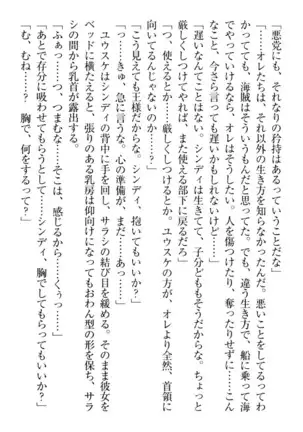 「悪党にも、それなりの矜持はあるっていうことだな」
「……オレたちは、それ以外の生き方を知らなかったんだ。悪いことをしてるってわ
かってても、海賊はそういうもんだと思ってた。でも、違う生き方で、船に乗って海
でやっていけるなら、オレはそうしたい。人を傷つけたり、奪ったりせずに……こん
なこと、今さら言っても遅いかもしれないけど……」
「遅いなんてことはない。シンディは生きてて、子分どももそうだからな。ちょっと
厳しくしつけてやれば、また使える部下に戻るだろ」
「つ、使えるとか……厳しくしつけるとか。ユウスケの方が、オレより全然、首領に
向いてるんじゃないのか……？」
「こう見えても王様だからな。シンディ、抱いてもいいか？」
「っ……きゅ、急に言うな。心の準備が、まだ……あっ……」
　ユウスケはシンディの背中に手を回し、サラシの結び目を緩める。そのまま彼女を
ベッドに横たえると、張りのある乳房は仰向けになってもおわん型の形を保ち、サラ
シの間から乳首が露出する。
「ふぁっ……っ、つまむな……そこは、感じるから……くぅっ……」
「あとで存分に吸わせてもらうとして……シンディ、胸でしてもらってもいいか？」
「む、むね……？　胸で、何をするって？」